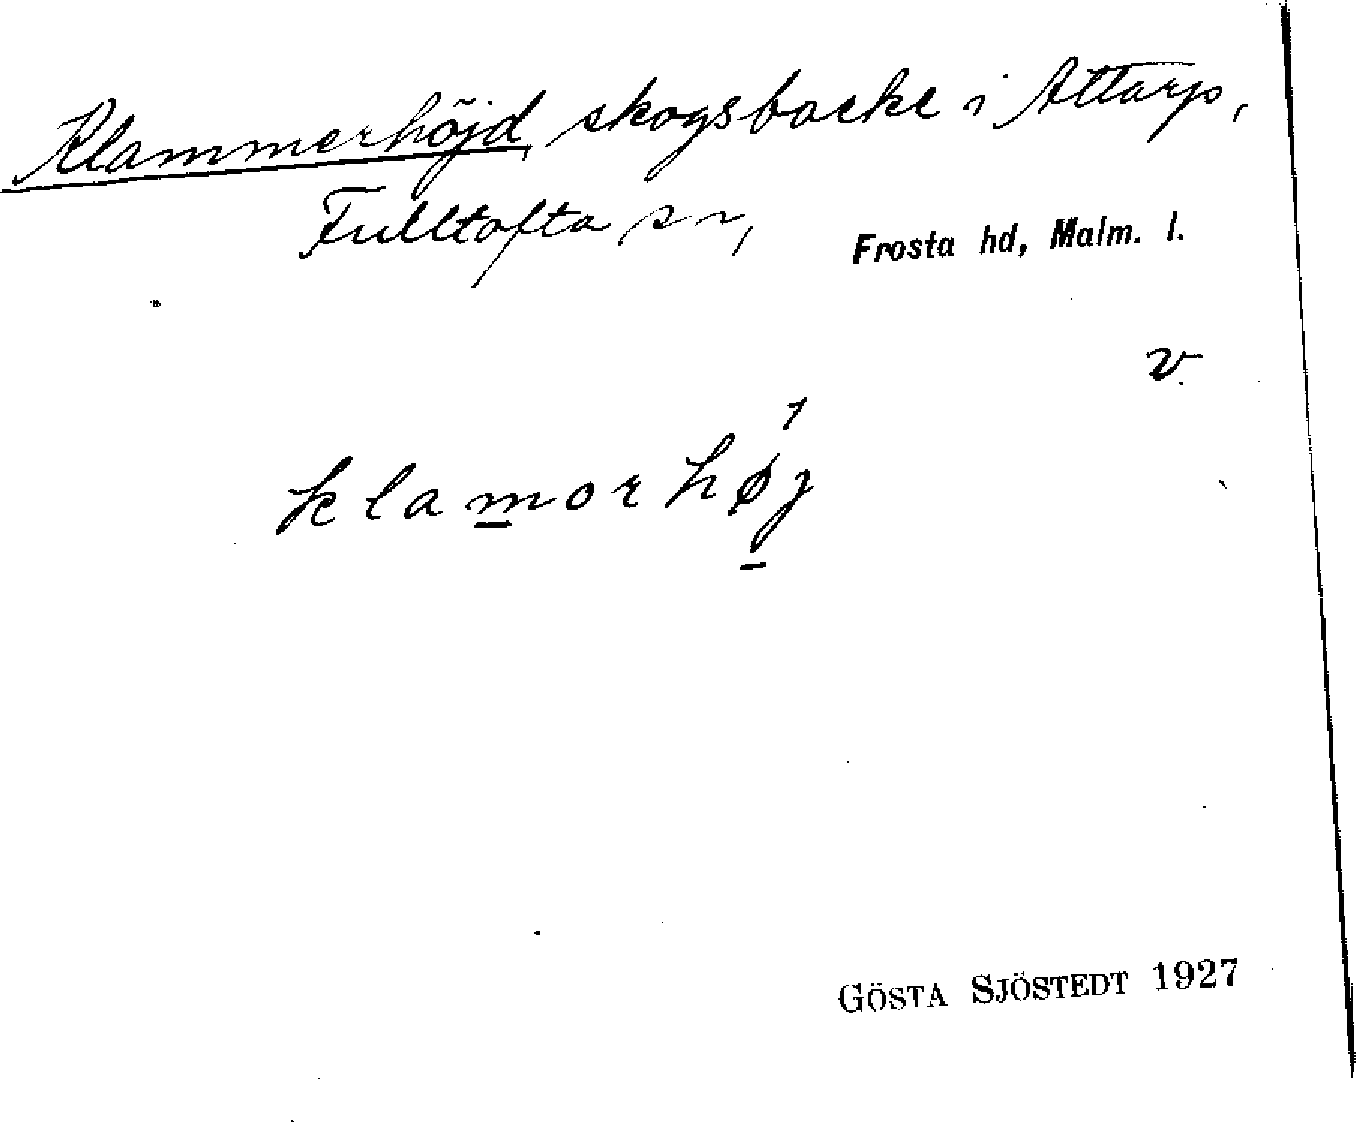 Klammerhöjd, skogsbacke i Attarp,
Fulltofta sn, Frosta hd, Malm. l.
v.
klamorhøj
GÖSTA SJÖSTEDT 1927